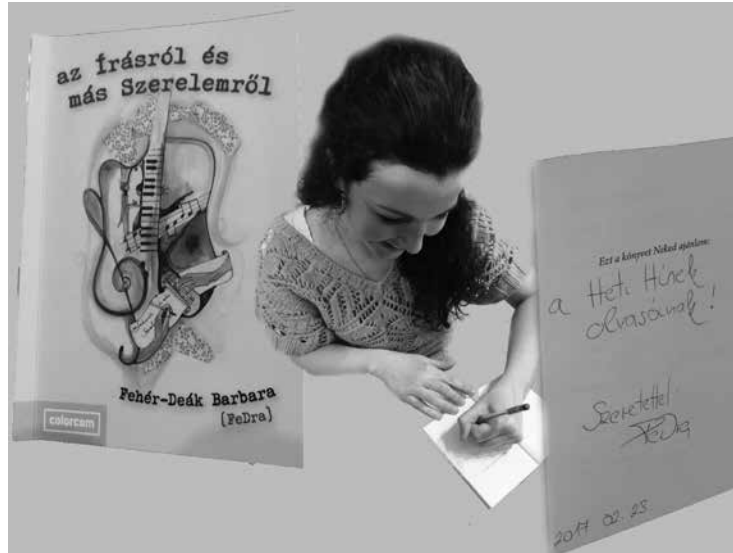 az Írásról és
más Szerelemről
Fehér-Deák Barbara
(FeDra)
colorcom
Ezt a könyvet Neked ajánlom:
a Heti Hírek
olvasóinak!
Szeretettel:
FeDra
2017 02. 23.